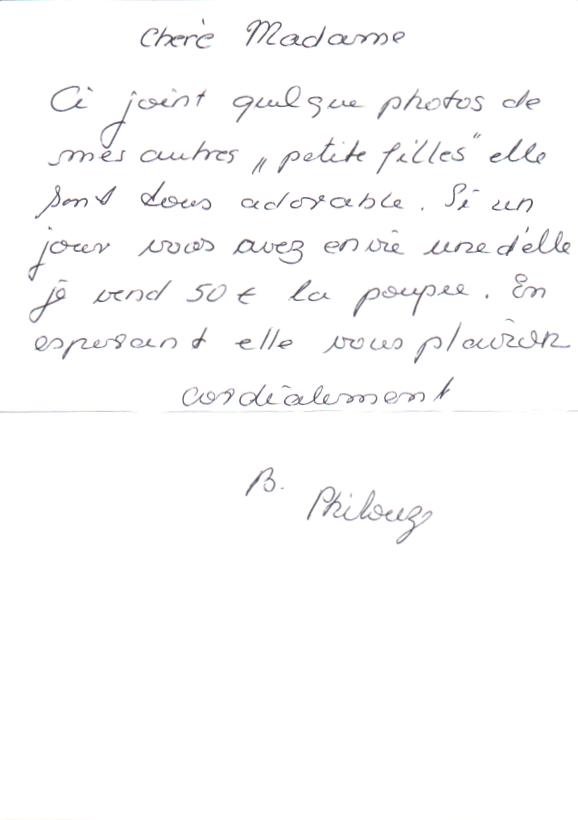 Cherè Madame
Ci joint quelque photos de
mes autres „petite filles" elle
sont tous adorable. Si un
jour vous avez envie une d'elle
je vend 50 € la poupee. En
esperant elle vous plairon
cordialement
B. Philouz